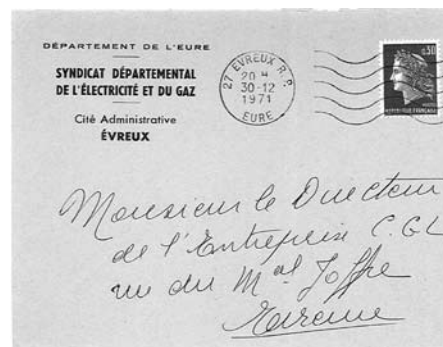 DÉPARTEMENT DE L'EURE
SYNDICAT DÉPARTEMENTAL
DE L'ÉLECTRICITÉ ET DU GAZ
Cité Administrative
ÉVREUX
27 EVREUX R.P.
20 H
30-12
1971
EURE
0,30
REPUBLIQUE FRANÇAISE
Monsieur le Directeur
de l'Entreprise C.GL
rue du Mal Joffre